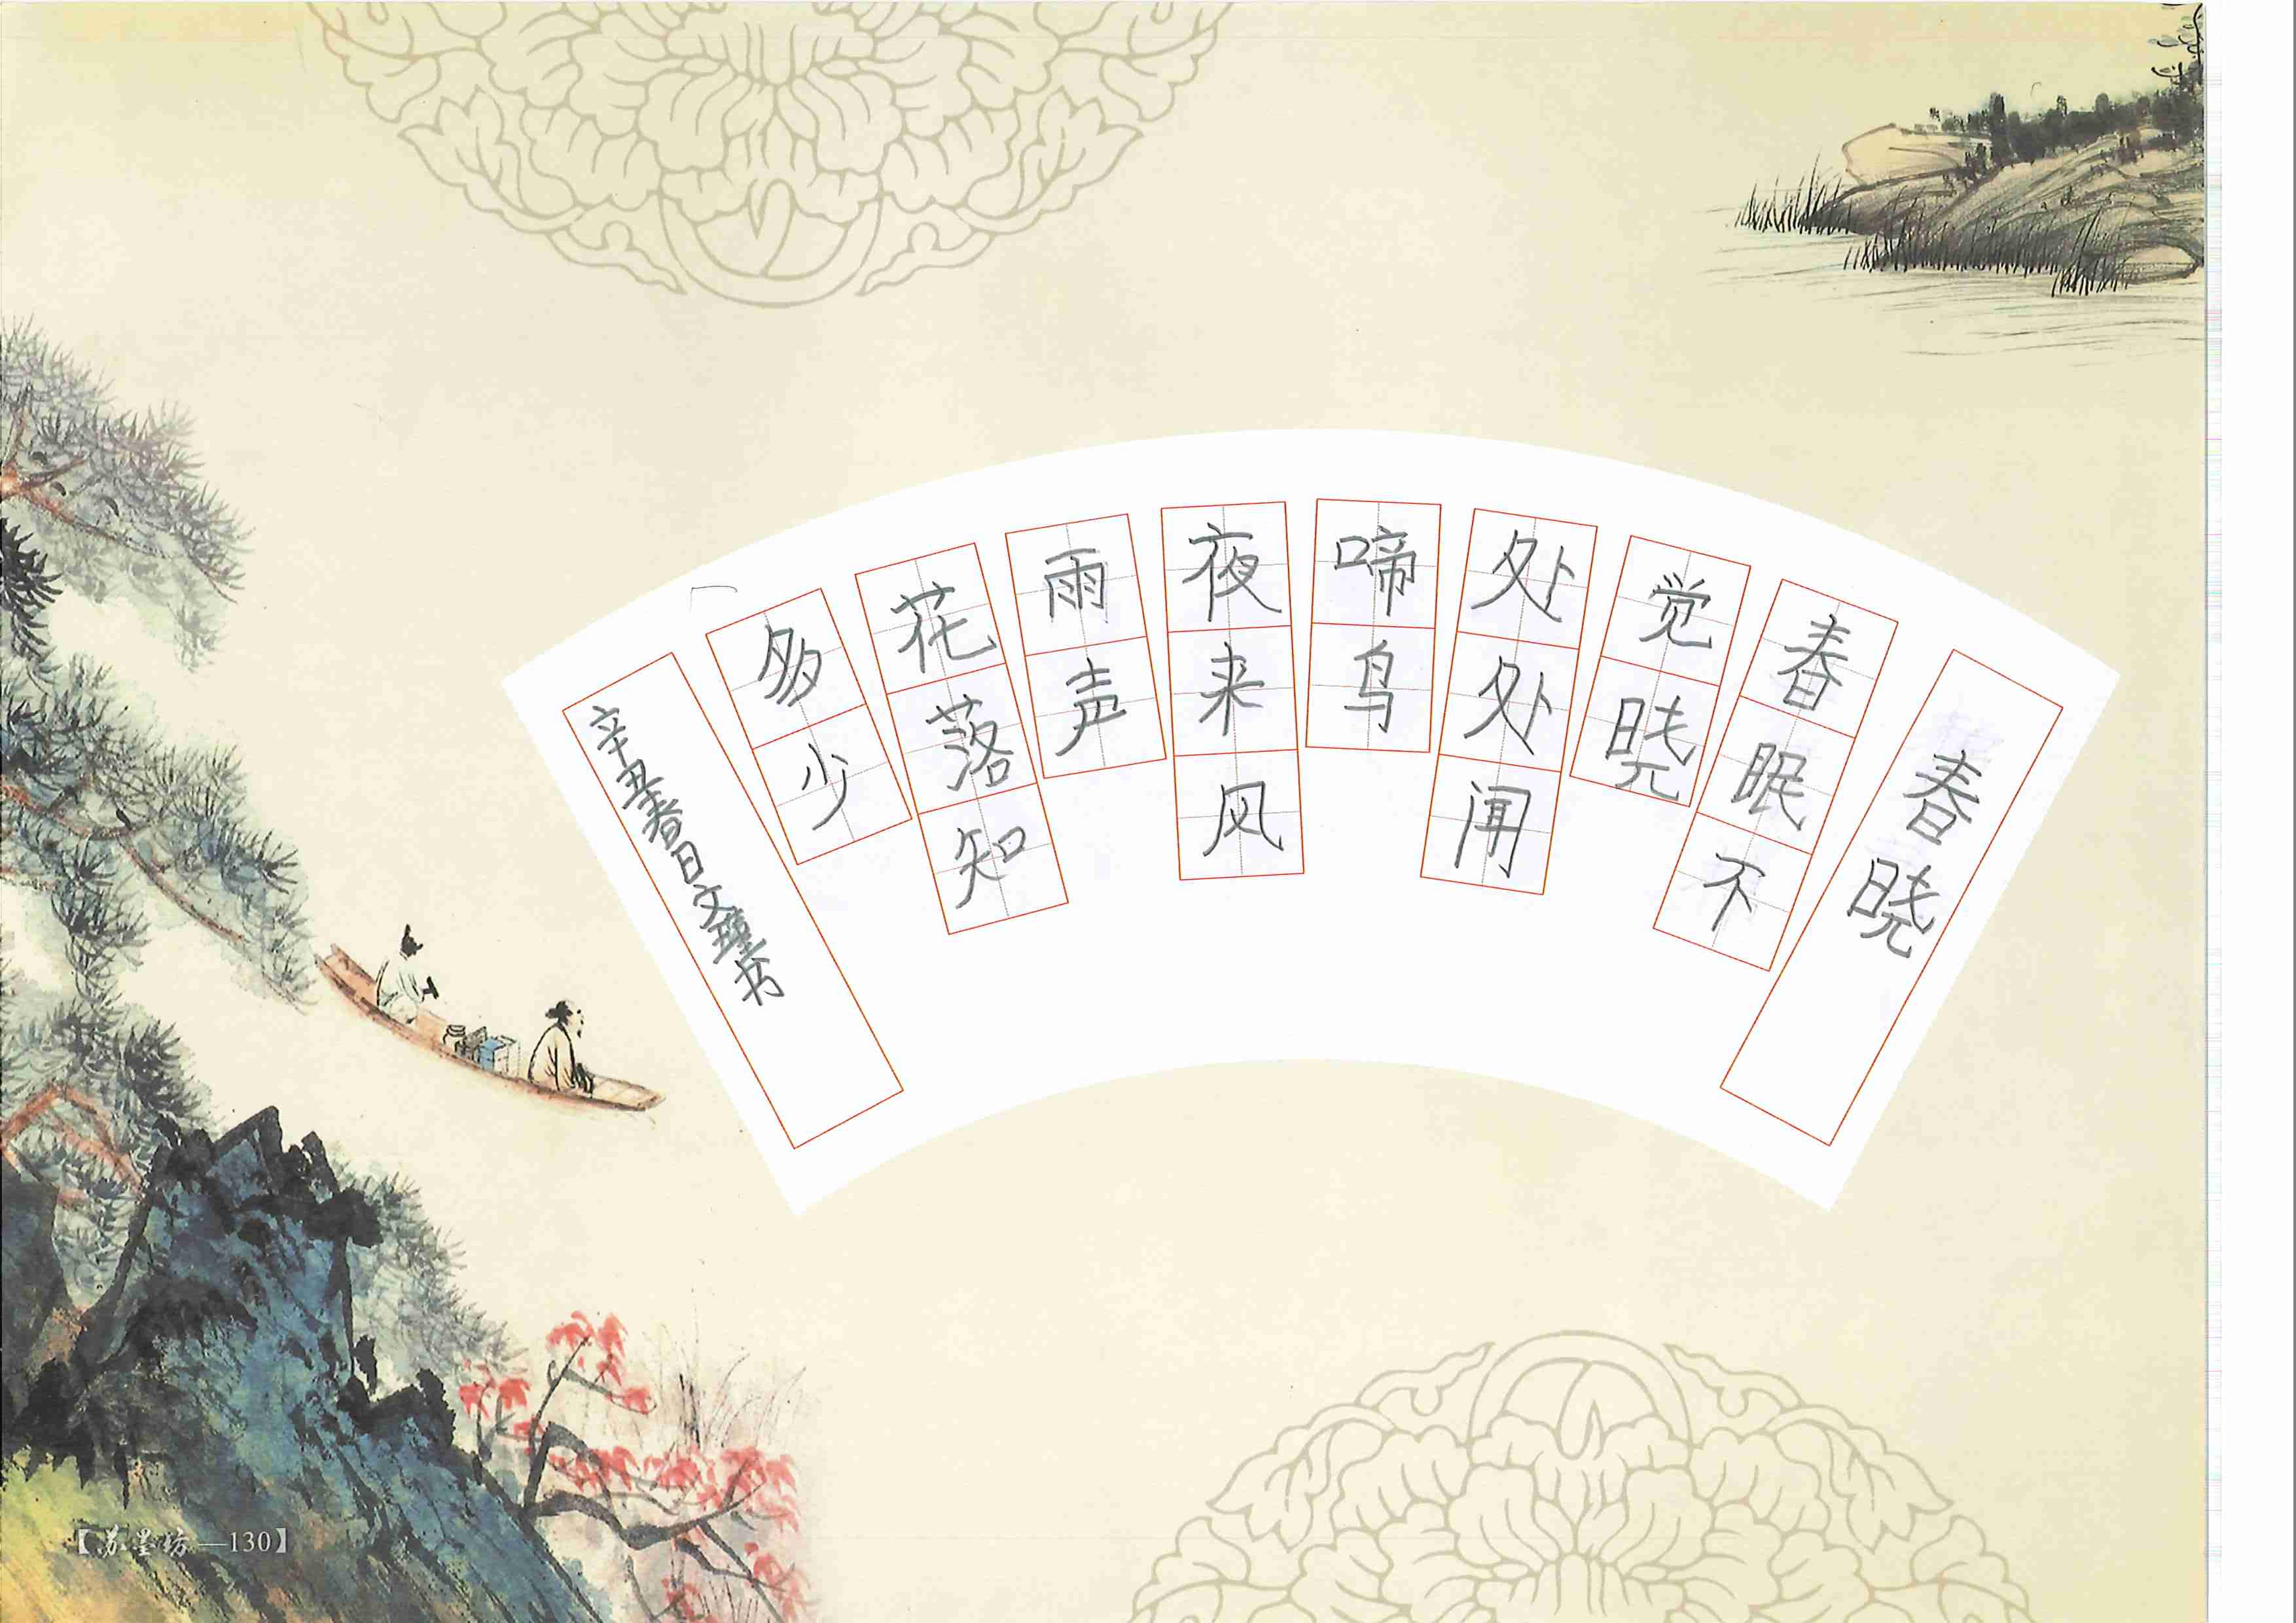 春晓
春眠不
觉晓
处处闻
啼鸟
夜来风
雨声
花落知
多少
辛丑春日文瑾书
【苏墨坊—130】